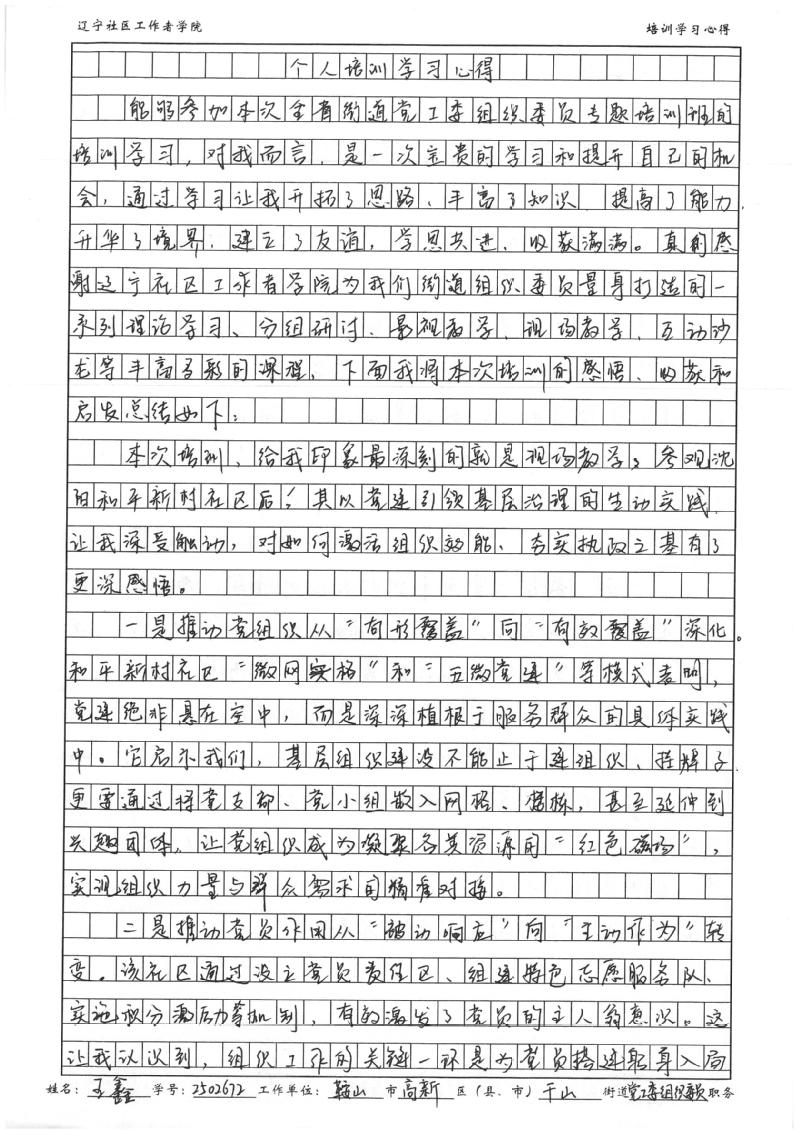 辽宁社区工作者学院 培训学习心得
个人培训学习心得
能够参加本次全省街道党工委组织委员专题培训班的
培训学习，对我而言，是一次宝贵的学习和提升自己的机
会，通过学习让我开拓了思路、丰富了知识、提高了能力、
升华了境界、建立了友谊，学思共进、收获满满。真的感
谢辽宁社区工作者学院为我们街道组织委员量身打造的一
系列理论学习、分组研讨、影视教学、现场教学、互动沙
龙等丰富多彩的课程，下面我将本次培训的感悟、收获和
启发总结如下：
本次培训，给我印象最深刻的就是现场教学。参观沈
阳和平新村社区后，其以党建引领基层治理的生动实践，
让我深受触动，对如何激活组织效能、夯实执政之基有了
更深感悟。
一是推动党组织从“有形覆盖”向“有效覆盖”深化。
和平新村社区“微网实格”和“五微党建”等模式表明，
党建绝非悬在空中，而是深深植根于服务群众的具体实践
中。它启示我们，基层组织建设不能止于建组织、挂牌子，
更需通过将党支部、党小组嵌入网格、楼栋，甚至延伸到
兴趣团体，让党组织成为凝聚各类资源的“红色磁场”，
实现组织力量与群众需求的精准对接。
二是推动党员作用从“被动响应”向“主动作为”转
变。该社区通过设立党员责任区、组建特色志愿服务队、
实施积分激励等机制，有效激发了党员的主人翁意识。这
让我认识到，组织工作的关键一环是为党员搭建取得入局
姓名：王鑫 学号：2502672 工作单位：鞍山 市 高新 区（县、市） 千山 街道 党工委组织委员 职务